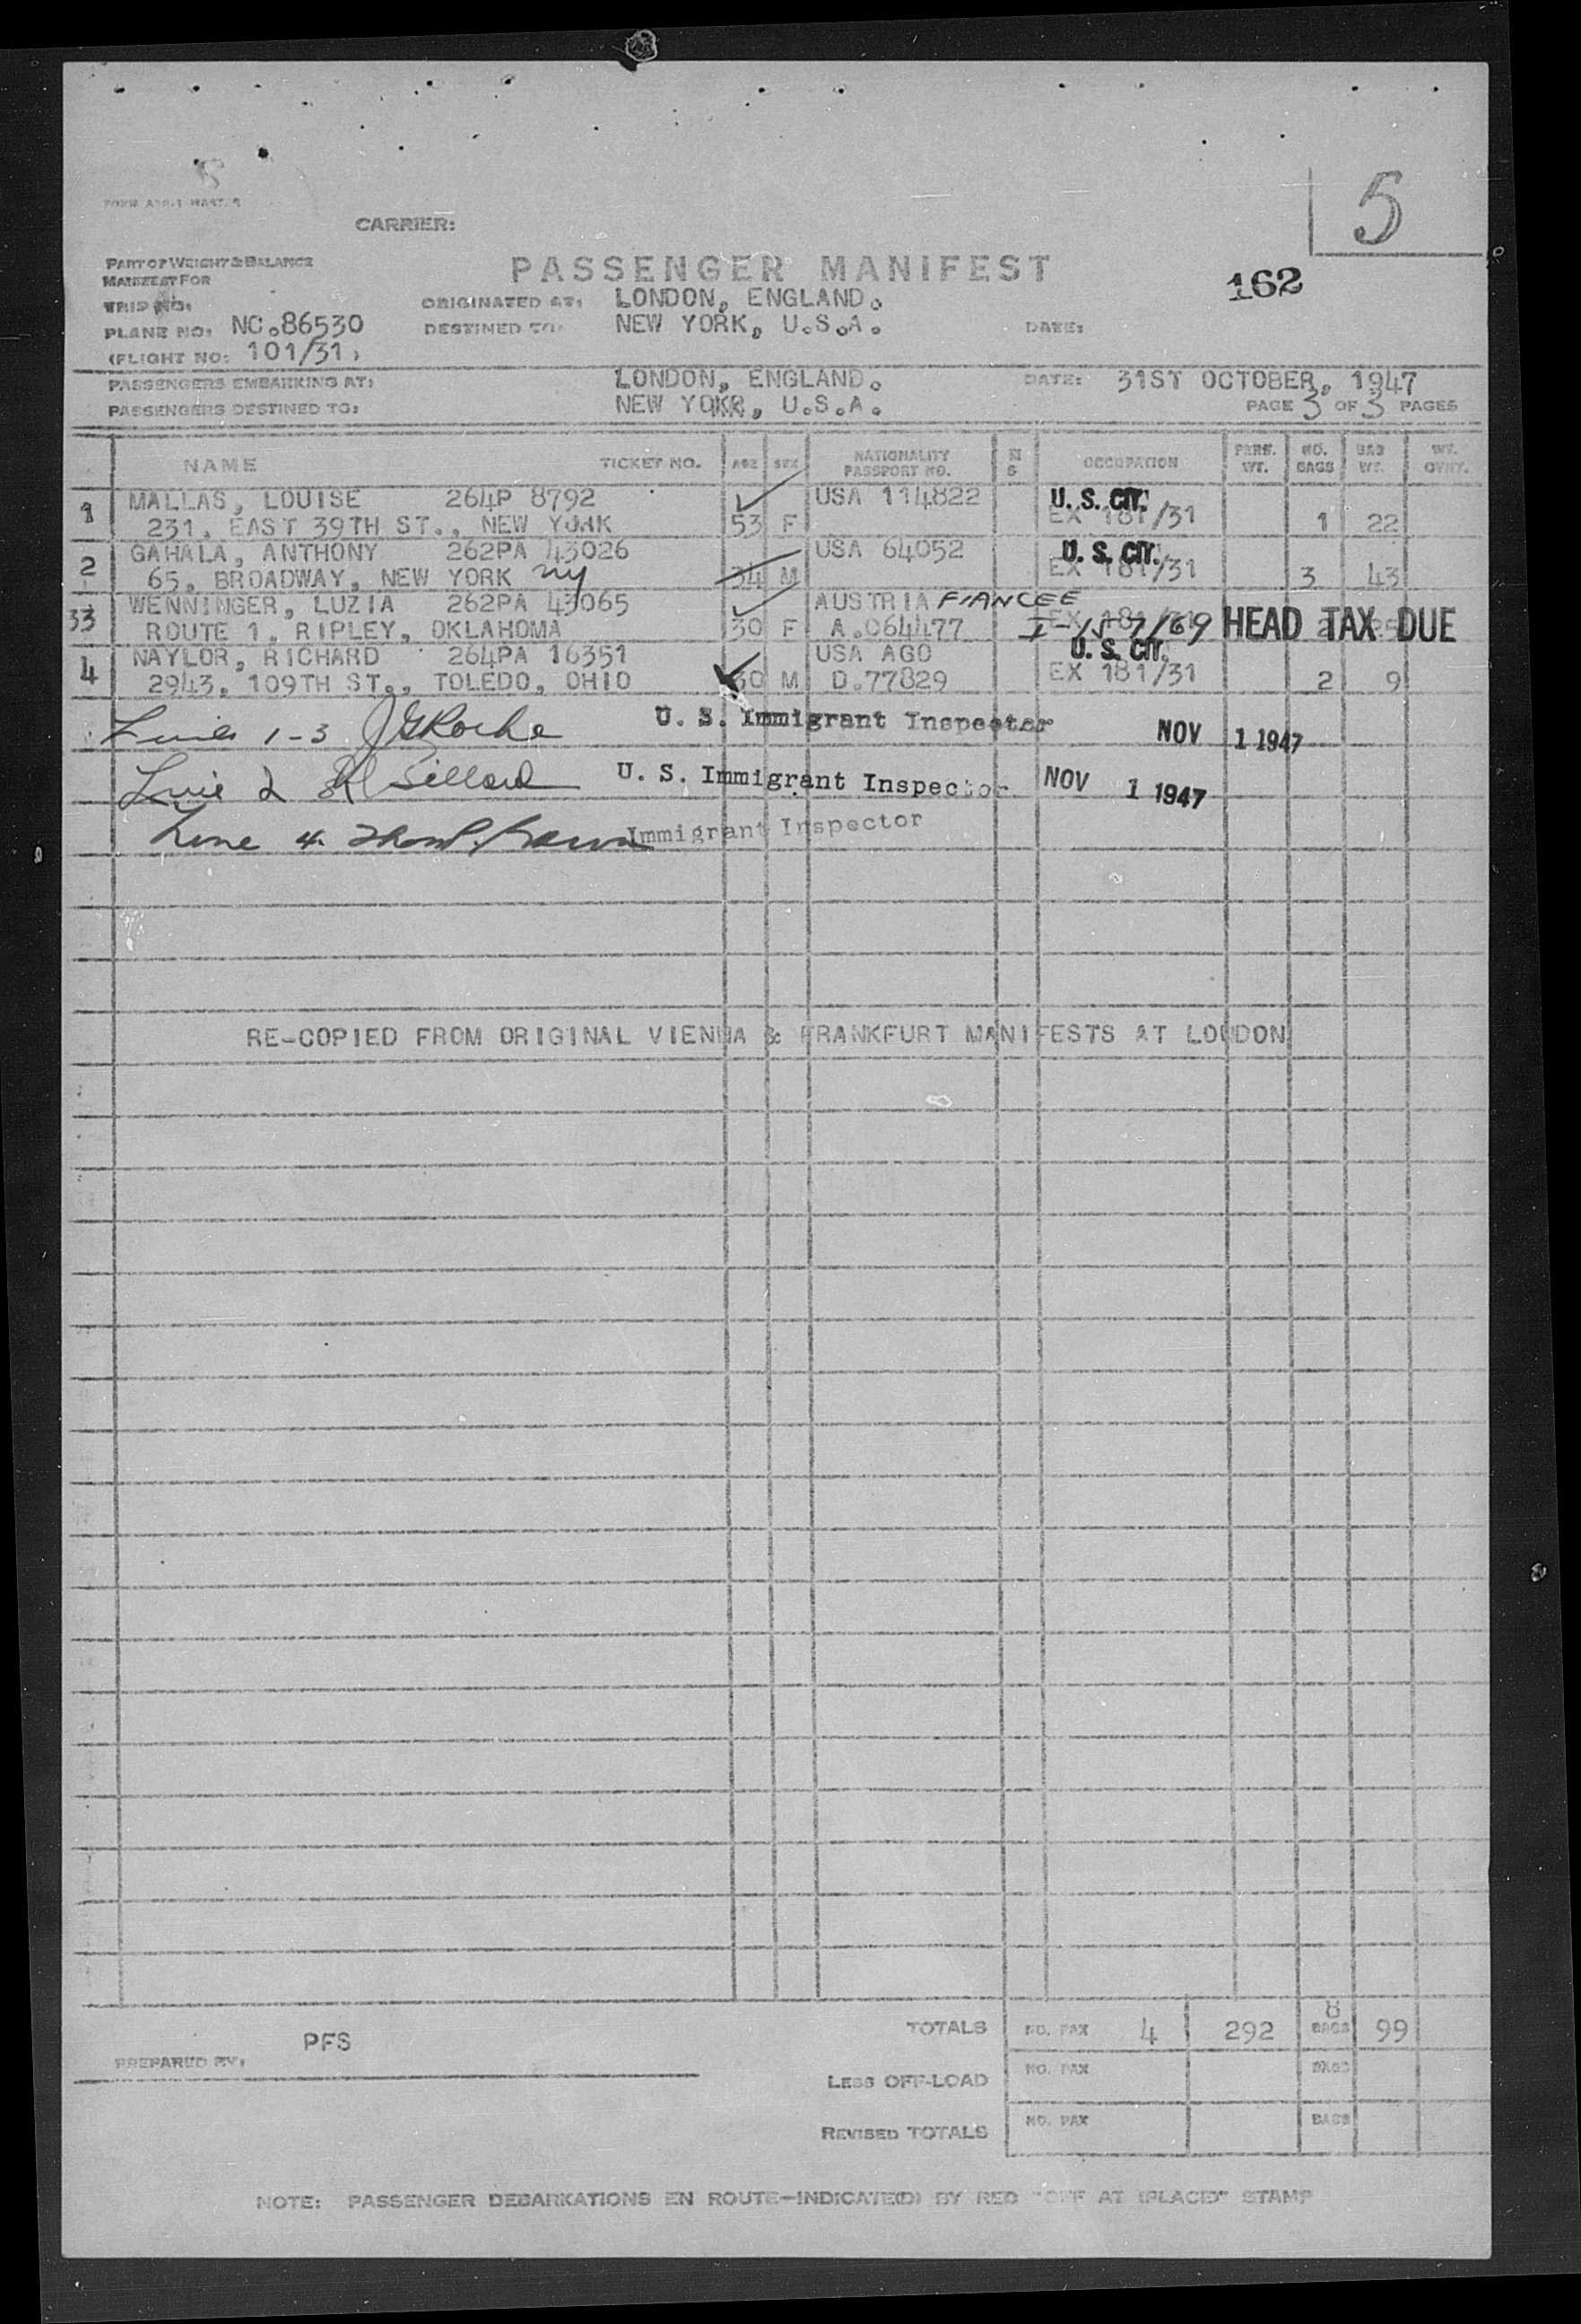 5
CARRIER:
PART OF WEIGHT & BALANCE
MANIFEST FOR
PASSENGER MANIFEST
162
TRIP NO:
ORIGINATED AT: LONDON, ENGLAND.
PLANE NO: NC.86530
DESTINED TO: NEW YORK, U.S.A.
DATE:
(FLIGHT NO: 101/31)
PASSENGERS EMBARKING AT: LONDON, ENGLAND. DATE: 31ST OCTOBER, 1947
PASSENGERS DESTINED TO: NEW YOKR, U.S.A. PAGE 3 OF 3 PAGES
NAME TICKET NO. AGE SEX NATIONALITY PASSPORT NO. OCCUPATION PASS. WT. NO. BAGS BAG WT. WT.
1 MALLAS, LOUISE 264P 8792 USA 114822 U.S. CIT.
231, EAST 39TH ST., NEW YORK 53 F EX 181/31 1 22
2 GAHALA, ANTHONY 262PA 43026 USA 64052 U.S. CIT.
65, BROADWAY, NEW YORK NY 34 M EX 181/31 3 43
33 WENNINGER, LUZIA 262PA 43065 AUSTRIA FIANCEE
ROUTE 1, RIPLEY, OKLAHOMA 30 F A.064477 HEAD TAX DUE
4 NAYLOR, RICHARD 264PA 16351 USA AGO U.S. CIT.
2943, 109TH ST., TOLEDO, OHIO 30 M D.77829 EX 181/31 2 9
Lines 1-3 JGRoche U. S. Immigrant Inspector NOV 1 1947
Line 2 U. S. Immigrant Inspector NOV 1 1947
Line 4. Immigrant Inspector
RE-COPIED FROM ORIGINAL VIENNA & FRANKFURT MANIFESTS AT LONDON
TOTALS NO. PAX 4 292 8 BAGS 99
PREPARED BY: PFS
LESS OFF-LOAD NO. PAX BAGS
REVISED TOTALS NO. PAX BAGS
NOTE: PASSENGER DEBARKATIONS EN ROUTE—INDICATE(D) BY RED "OFF AT (PLACE)" STAMP